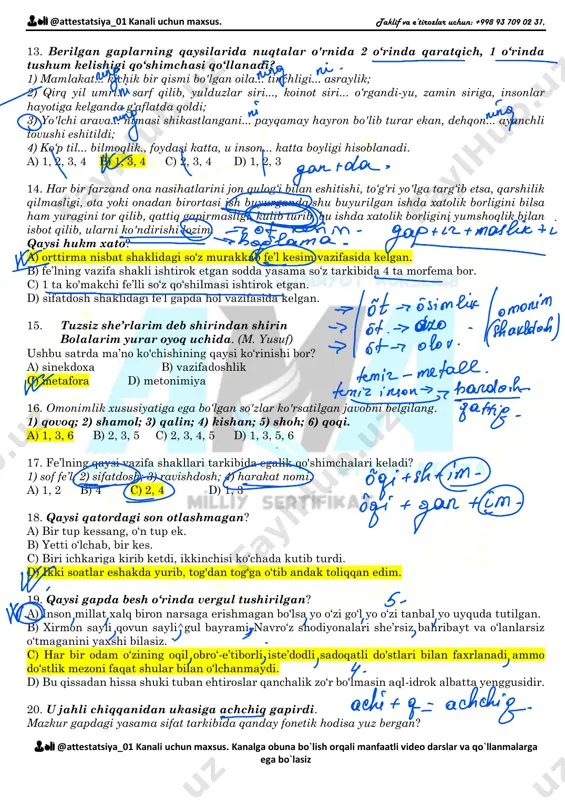 @attestatsiya_01 Kanali uchun maxsus. Taklif va e'tirozlar uchun: +998 93 709 02 31.
13. Berilgan gaplarning qaysilarida nuqtalar o'rnida 2 o'rinda qaratqich, 1 o'rinda
tushum kelishigi qo'shimchasi qo'llanadi?
ning ning ni
1) Mamlakat... kichik bir qismi bo'lgan oila... tinchligi... asraylik;
2) Qirq yil umri... sarf qilib, yulduzlar siri..., koinot siri... o'rgandi-yu, zamin siriga, insonlar
hayotiga kelganda g'aflatda qoldi;
ning ni ning
3) Yo'lchi arava... nimasi shikastlangani... payqamay hayron bo'lib turar ekan, dehqon... ayanchli
tovushi eshitildi;
4) Ko'p til... bilmoqlik., foydasi katta, u inson... katta boyligi hisoblanadi.
A) 1, 2, 3, 4 B) 1, 3, 4 C) 2, 3, 4 D) 1, 2, 3
gan+da
14. Har bir farzand ona nasihatlarini jon qulog'i bilan eshitishi, to'g'ri yo'lga targ'ib etsa, qarshilik
qilmasligi, ota yoki onadan birortasi ish buyurganda shu buyurilgan ishda xatolik borligini bilsa
ham yuragini tor qilib, qattiq gapirmasligi, kulib turib, bu ishda xatolik borligini yumshoqlik bilan
isbot qilib, ularni ko'ndirishi lozim.
Qaysi hukm xato?
gap+ir+maslik+i
A) orttirma nisbat shaklidagi so'z murakkab fe'l kesim vazifasida kelgan.
B) fe'lning vazifa shakli ishtirok etgan sodda yasama so'z tarkibida 4 ta morfema bor.
C) 1 ta ko'makchi fe'lli so'z qo'shilmasi ishtirok etgan.
D) sifatdosh shaklidagi fe'l gapda hol vazifasida kelgan.
→ õt → õsimlik
→ õt → dzo
→ õt → olov.
omonim
shakldosh
15. Tuzsiz she'rlarim deb shirindan shirin
Bolalarim yurar oyoq uchida. (M. Yusuf)
Ushbu satrda ma'no ko'chishining qaysi ko'rinishi bor?
A) sinekdoxa B) vazifadoshlik
C) metafora D) metonimiya
temir – metall.
temir inson → bardosh
qattiq
16. Omonimlik xususiyatiga ega bo'lgan so'zlar ko'rsatilgan javobni belgilang.
1) qovoq; 2) shamol; 3) qalin; 4) kishan; 5) shoh; 6) qoqi.
A) 1, 3, 6 B) 2, 3, 5 C) 2, 3, 4, 5 D) 1, 3, 5, 6
17. Fe'lning qaysi vazifa shakllari tarkibida egalik qo'shimchalari keladi?
1) sof fe'l; 2) sifatdosh; 3) ravishdosh; 4) harakat nomi
A) 1, 2 B) 4 C) 2, 4 D) 1, 3
õqi+sh+im-
õqi+gan+im-
MILLIY SERTIFIKAT
18. Qaysi qatordagi son otlashmagan?
A) Bir tup kessang, o'n tup ek.
B) Yetti o'lchab, bir kes.
C) Biri ichkariga kirib ketdi, ikkinchisi ko'chada kutib turdi.
D) Ikki soatlar eshakda yurib, tog'dan tog'ga o'tib andak toliqqan edim.
19. Qaysi gapda besh o'rinda vergul tushirilgan? 5-
A) Inson, millat, xalq biron narsaga erishmagan bo'lsa, yo o'zi go'l, yo o'zi tanbal, yo uyquda tutilgan.
B) Xirmon sayli, qovun sayli, gul bayrami, Navro'z shodiyonalari she'rsiz, bahribayt va o'lanlarsiz
o'tmaganini yaxshi bilasiz.
C) Har bir odam o'zining oqil, obro'-e'tiborli, iste'dodli, sadoqatli do'stlari bilan faxrlanadi, ammo
do'stlik mezoni faqat shular bilan o'lchanmaydi. 4.
D) Bu qissadan hissa shuki tuban ehtiroslar qanchalik zo'r bo'lmasin aql-idrok albatta yenggusidir.
20. U jahli chiqqanidan ukasiga achchiq gapirdi. achi+q = achchiq
Mazkur gapdagi yasama sifat tarkibida qanday fonetik hodisa yuz bergan?
@attestatsiya_01 Kanali uchun maxsus. Kanalga obuna bo`lish orqali manfaatli video darslar va qo`llanmalarga
ega bo`lasiz